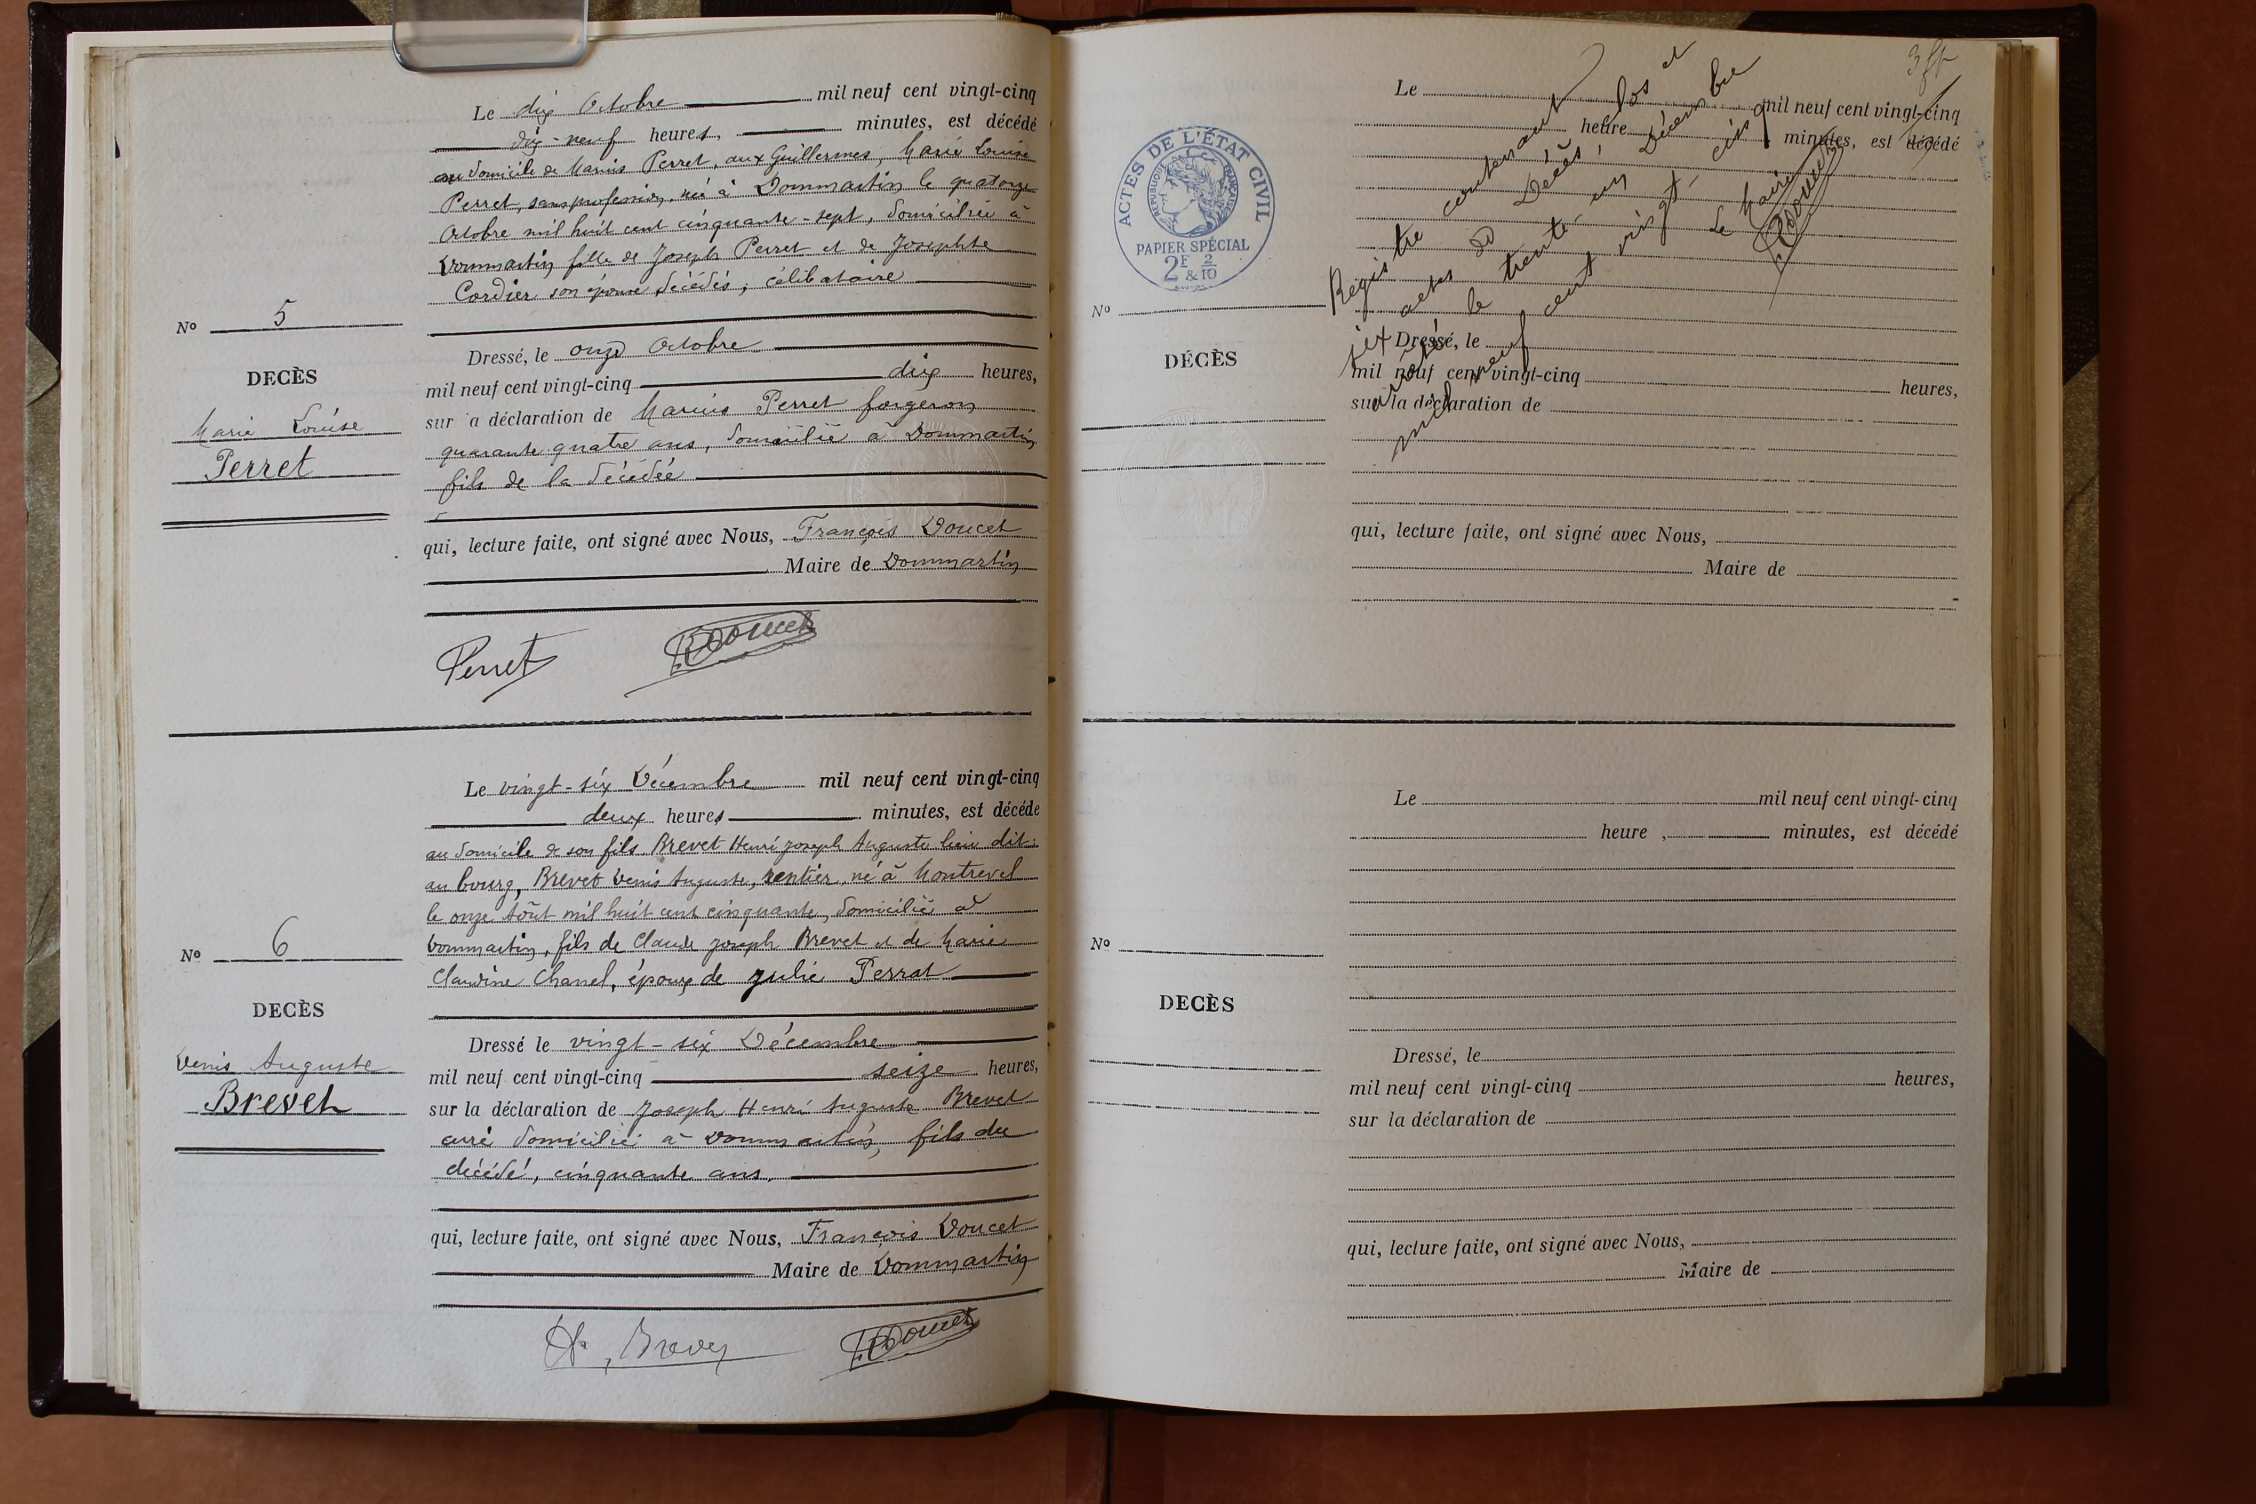 Le dix Octobre mil neuf cent vingt-cinq
dix-neuf heures, minutes, est décédé
au domicile de Marius Perret, aux Guillermes, Marie Louise
Perret, sans profession, née à Dommartin le quatorze
Octobre mil huit cent cinquante-sept, domiciliée à
Dommartin fille de Joseph Perret et de Josephte
Cordier son épouse décédés, célibataire
No 5
DECÈS
Marie Louise
Perret
Dressé, le onze Octobre
mil neuf cent vingt-cinq dix heures,
sur a déclaration de Marius Perret forgeron
quarante quatre ans, domicilié à Dommartin
fils de la décédée
qui, lecture faite, ont signé avec Nous, François Doucet
Maire de Dommartin
Perret Doucet
Le vingt-six Décembre mil neuf cent vingt-cinq
deux heures minutes, est décédé
au domicile de son fils Brevet Henri Joseph Auguste lieu dit:
au bourg, Brevet Denis Auguste, rentier, né à Montrevel
le onze Août mil huit cent cinquante, domicilié à
Dommartin, fils de Claude Joseph Brevet et de Marie
Claudine Chanel, époux de Julie Perrat
No 6
DECÈS
Denis Auguste
Brevet
Dressé le vingt-six Décembre
mil neuf cent vingt-cinq seize heures,
sur la déclaration de Joseph Henri Auguste Brevet
curé domicilié à Dommartin, fils du
décédé, cinquante ans.
qui, lecture faite, ont signé avec Nous, François Doucet
Maire de Dommartin
Brevet Doucet
ACTES DE L'ÉTAT CIVIL
RÉPUBLIQUE FRANÇAISE
PAPIER SPÉCIAL
2F & 2/10
Registre contenant
six actes de Décès, clos et
arrêté le trente-un Décembre
mil neuf cent vingt-cinq
Le Maire
Doucet
Le mil neuf cent vingt-cinq
heure minutes, est décédé
No
DÉCÈS
Dressé, le
mil neuf cent vingt-cinq heures,
sur la déclaration de
qui, lecture faite, ont signé avec Nous,
Maire de
Le mil neuf cent vingt-cinq
heure , minutes, est décédé
No
DECÈS
Dressé, le
mil neuf cent vingt-cinq heures,
sur la déclaration de
qui, lecture faite, ont signé avec Nous,
Maire de